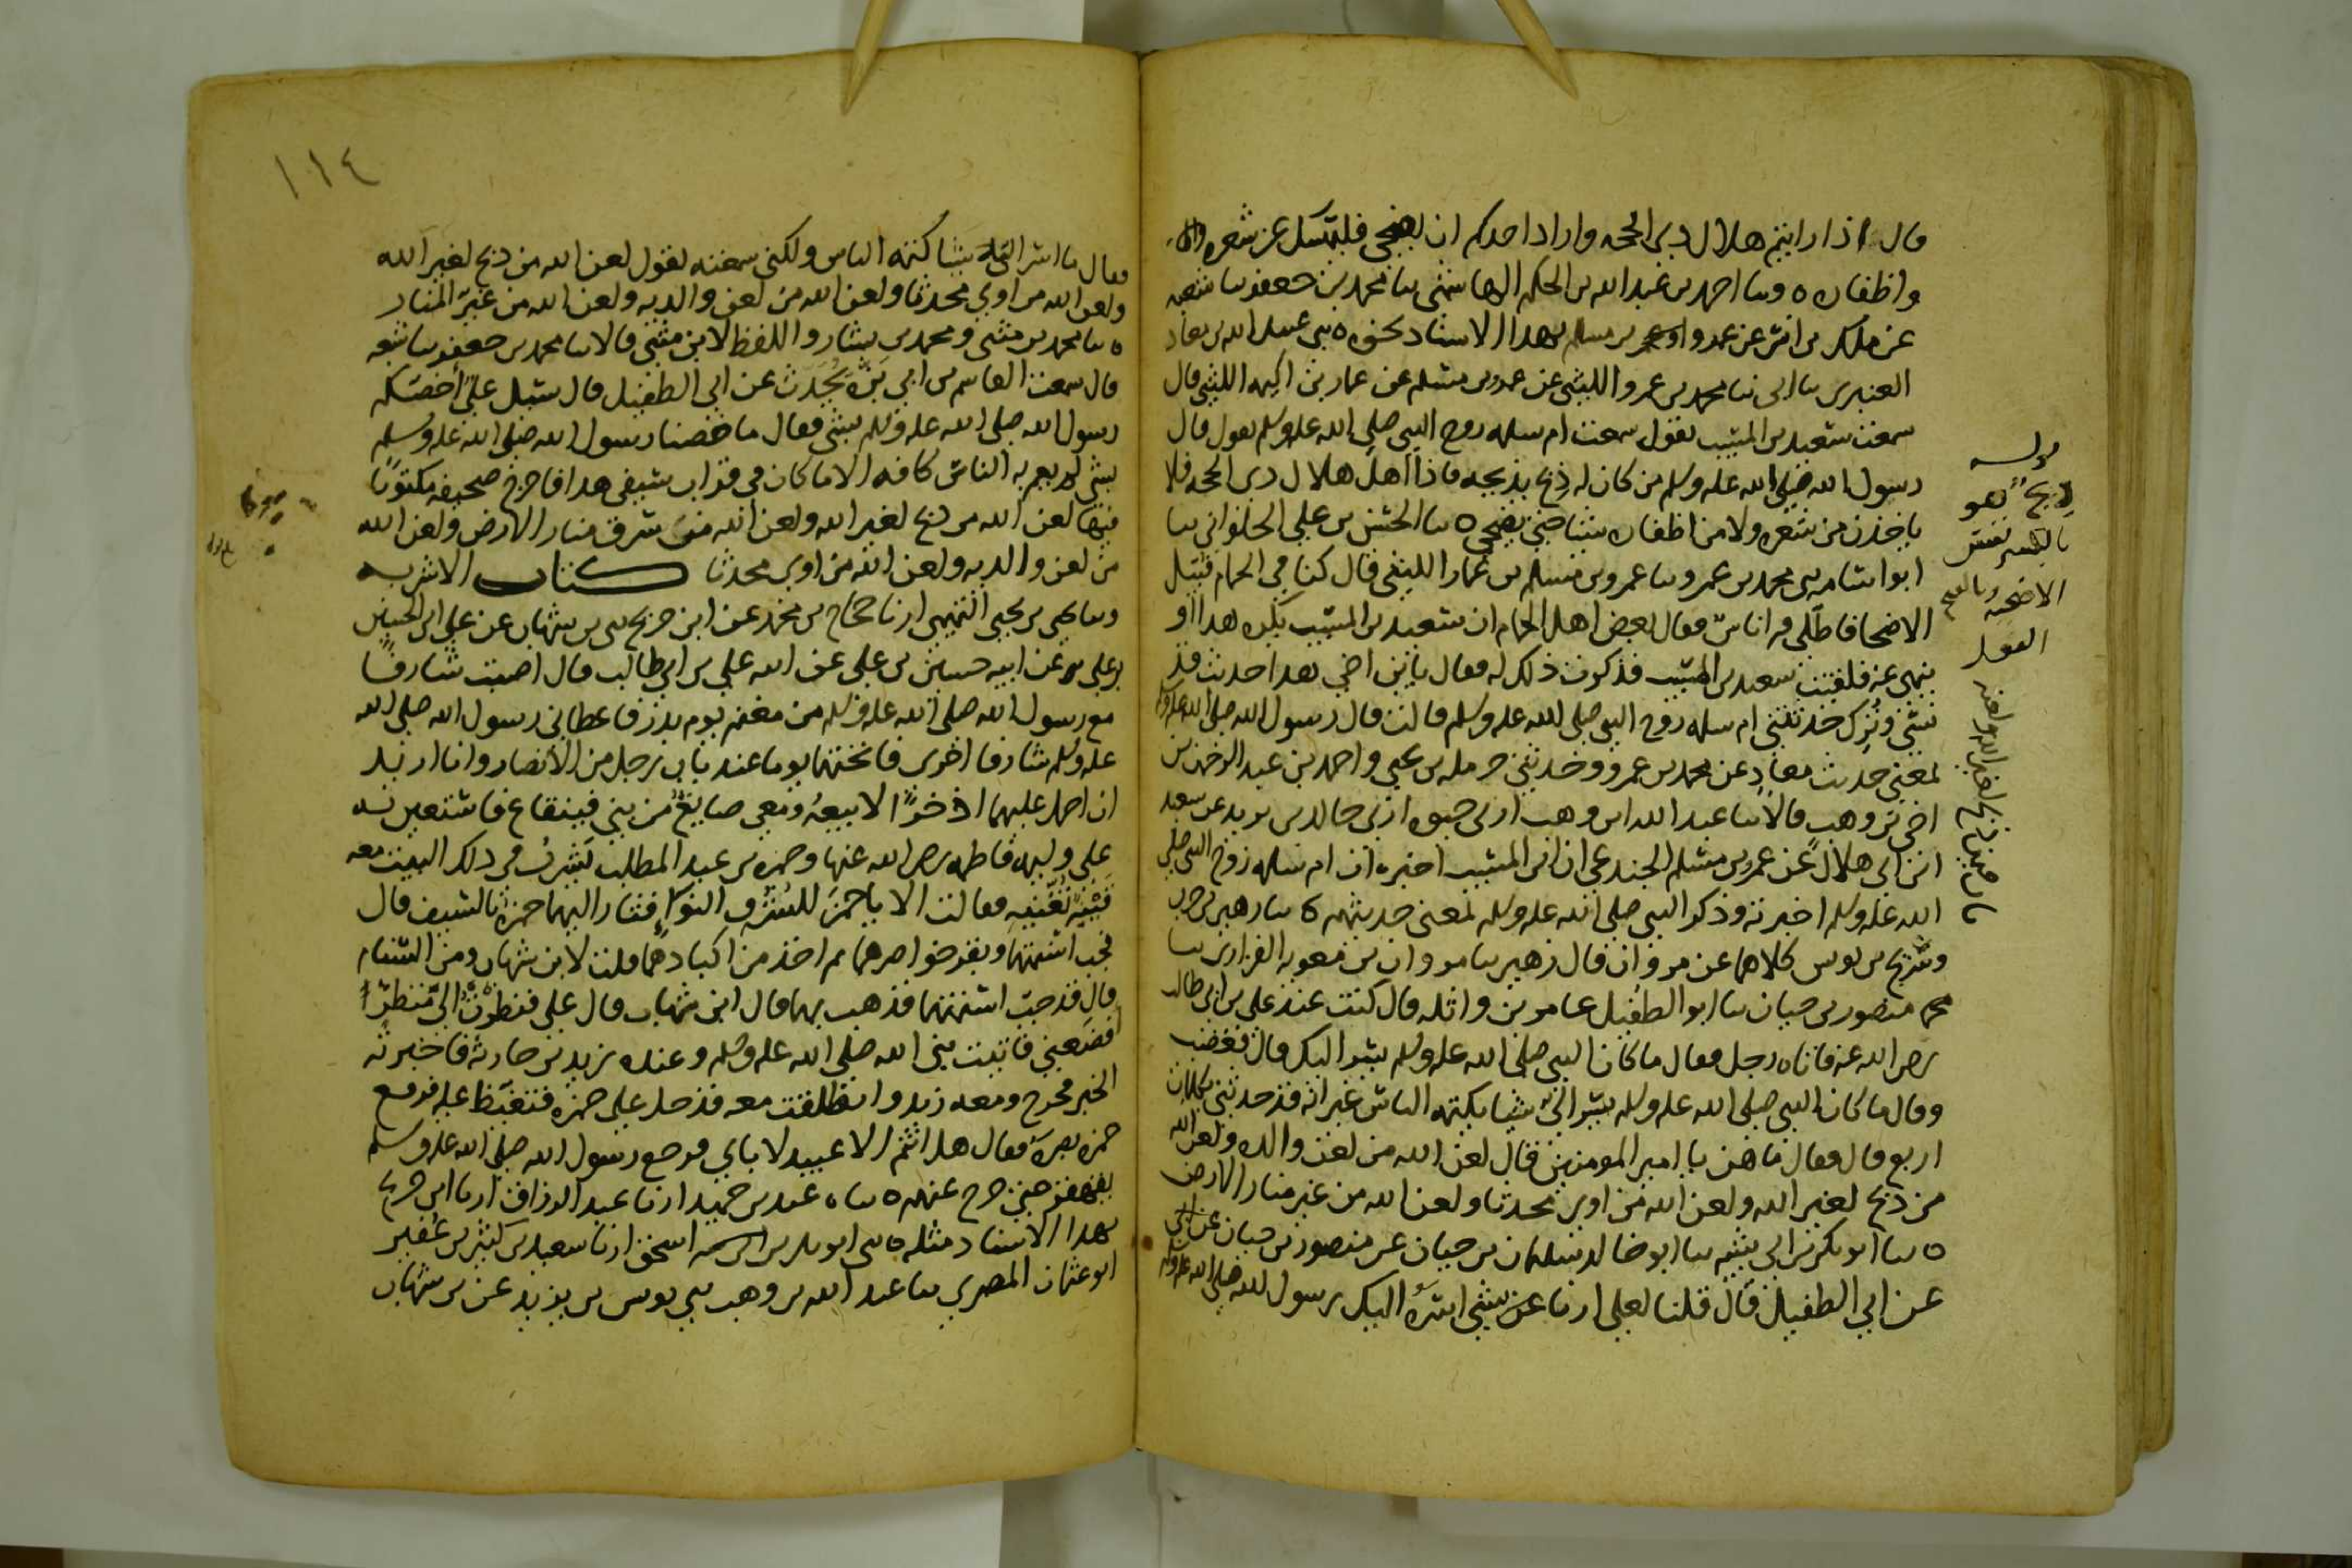 قال اذا رايتم هلال ذي الحجه واراد احدكم ان يضحي فليمسك عن شعره
واظفاره ٥ وسا احمد بن عبد الله بن الحكم الهاشمي سا محمد بن جعفر سا شعبه
عن ملك بن انس عن عمرو او عمر بن مسلم بهدا الاسناد نحوه ٥ سى عبيد الله بن معاد
العنبرى سا ابى سا محمد بن عمرو الليثي عن عمرو بن مسلم عن عمار بن اكيمه الليثي قال
سمعت سعيد بن المسيب يقول سمعت ام سلمه زوج النبي صلى الله عليه وسلم تقول قال
رسول الله صلى الله عليه وسلم من كان له ذبح يذبحه فاذا اهل هلال ذى الحجه فلا
ياخذن من شعره ولا من اظفاره شيئا حتى يضحي ٥ سا الحسن بن علي الحلواني سا
ابو اسامه سى محمد بن عمرو سا عمرو بن مسلم بن عمار الليثي قال كنا في الحمام قبيل
الاضحا فاطلى فيه اناس فقال بعض اهل الحمام ان سعيد بن المسيب يكره هدا او
ينهى عنه فلقيت سعيد بن المسيب فذكرت ذلك له فقال يابن اخي هدا حديث قد
نسي وترك حدثتني ام سلمه زوج النبي صلى الله عليه وسلم قالت قال رسول الله صلى الله عليه وسلم
بمعنى حديث معاد عن محمد بن عمرو وحدثني حرمله بن يحيى واحمد بن عبد الرحمن بن
اخي بن وهب قالا سا عبد الله ابن وهب ارنى حيوه ارنى خالد بن يزيد عن سعيد
ابن ابي هلال عن عمرو بن مسلم الجندعي ان ابن المسيب اخبره ان ام سلمه زوج النبي صلى
الله عليه وسلم اخبرته وذكر النبي صلى الله عليه وسلم بمعنى حديثهم ٥ سا زهير بن حرب
وسريج بن يونس كلاهما عن مروان قال زهير سا مروان بن معويه الفزارى سا
منصور بن حيان سا ابو الطفيل عامر بن واثله قال كنت عند علي بن ابي طالب
رضى الله عنه فاتاه رجل فقال ما كان النبي صلى الله عليه وسلم يسر اليك قال فغضب
وقال ما كان النبي صلى الله عليه وسلم يسر الي شيئا يكتمه الناس غير انه قد حدثني بكلمات
اربع قال فقال ما هن يا امير المومنين قال لعن الله من لعن والده ولعن الله
من ذبح لغير الله ولعن الله من اوى محدثا ولعن الله من غير منار الارض
٥ سا ابو بكر بن ابي شيبه سا ابو خالد سليمان بن حيان عن منصور بن حيان
عن ابي الطفيل قال قلنا لعلي ارنا عن شي اسره اليك رسول الله صلى الله عليه وسلم
قوله
ذبح هو
بالكسر نفس
الاضحيه وبالفتح
الفعل
باب من ذبح لغير الله ولعنه
١١٤
فقال ما اسر الي شيئا كتمه الناس ولكني سمعته يقول لعن الله من ذبح لغير الله
ولعن الله من اوي محدثا ولعن الله من لعن والديه ولعن الله من غير المنار
٥ سا محمد بن مثنى ومحمد بن بشار واللفظ لابن مثنى قالا سا محمد بن جعفر سا شعبه
قال سمعت القاسم بن ابي بزه يحدث عن ابي الطفيل قال سئل علي اخصكم
رسول الله صلى الله عليه وسلم بشي فقال ما خصنا رسول الله صلى الله عليه وسلم
بشي لم يعم به الناس كافه الا ما كان في قراب سيفي هدا فاخرج صحيفه مكتوبا
فيها لعن الله من ذبح لغير الله ولعن الله من سرق منار الارض ولعن الله
من لعن والديه ولعن الله من اوى محدثا كتاب الاشربه
وسا يحيى بن يحيى التميمي ارنا حجاج بن محمد عن ابن جريج سى بن شهاب عن علي ابن الحسين
بن علي عن ابيه حسين بن علي عن ابيه علي بن ابي طالب قال اصبت شارفا
مع رسول الله صلى الله عليه وسلم من مغنم يوم بدر فاعطاني رسول الله صلى الله
عليه وسلم شارفا اخرى فانختها يوما عند باب رجل من الانصار وانا اريد
ان احمل عليهما اذخرا لابيعه ومعي صايغ من بني قينقاع فاستعين به
على وليمه فاطمه رضى الله عنها وحمزه بن عبد المطلب يشرب في ذلك البيت معه
قينه تغنيه فقالت الا يا حمز للشرف النواء فثار اليهما حمزه بالسيف
فجب اسنمتهما وبقر خواصرهما ثم اخذ من اكبادهما قلت لابن شهاب ومن السنام
قال قد جب اسنمتهما فذهب بها قال ابن شهاب قال علي فنظرت الى منظرا
افضعني فاتيت نبي الله صلى الله عليه وسلم وعنده زيد بن حارثه فاخبرته
الخبر فخرج ومعه زيد وانطلقت معه فدخل على حمزه فتغيظ عليه فرفع
حمزه بصره فقال هل انتم الا عبيد لاباي فرجع رسول الله صلى الله عليه وسلم
يقهقر حتى خرج عنهم ٥ سا عبد بن حميد ارنا عبد الرزاق ارنا ابن جريج
بهدا الاسناد مثله ٥ سى ابو بكر بن اسحق ارنا سعيد بن كثير بن عفير
ابو عثمان المصري سا عبد الله بن وهب سى يونس بن يزيد عن بن شهاب